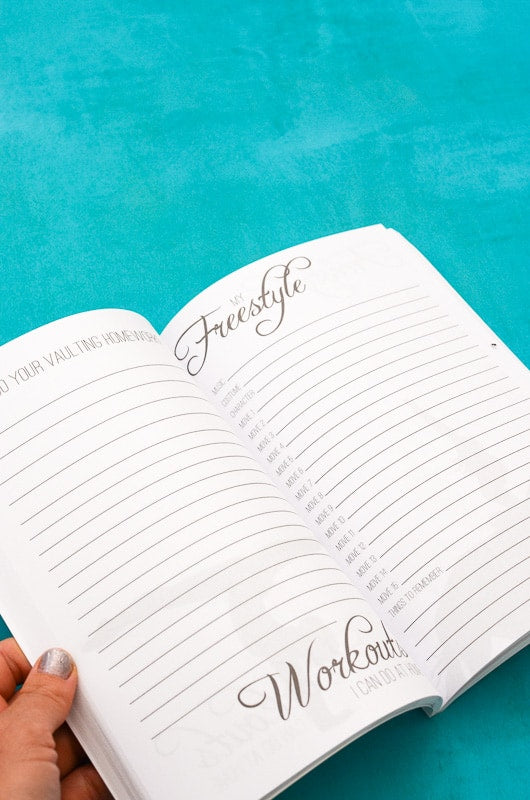 DO YOUR VAULTING HOMEWORK
Workouts
I CAN DO AT
MY
Freestyle
MUSIC
COSTUME
CHARACTER
MOVE 1
MOVE 2
MOVE 3
MOVE 4
MOVE 5
MOVE 6
MOVE 7
MOVE 8
MOVE 9
MOVE 10
MOVE 11
MOVE 12
MOVE 13
MOVE 14
MOVE 15
THINGS TO REMEMBER